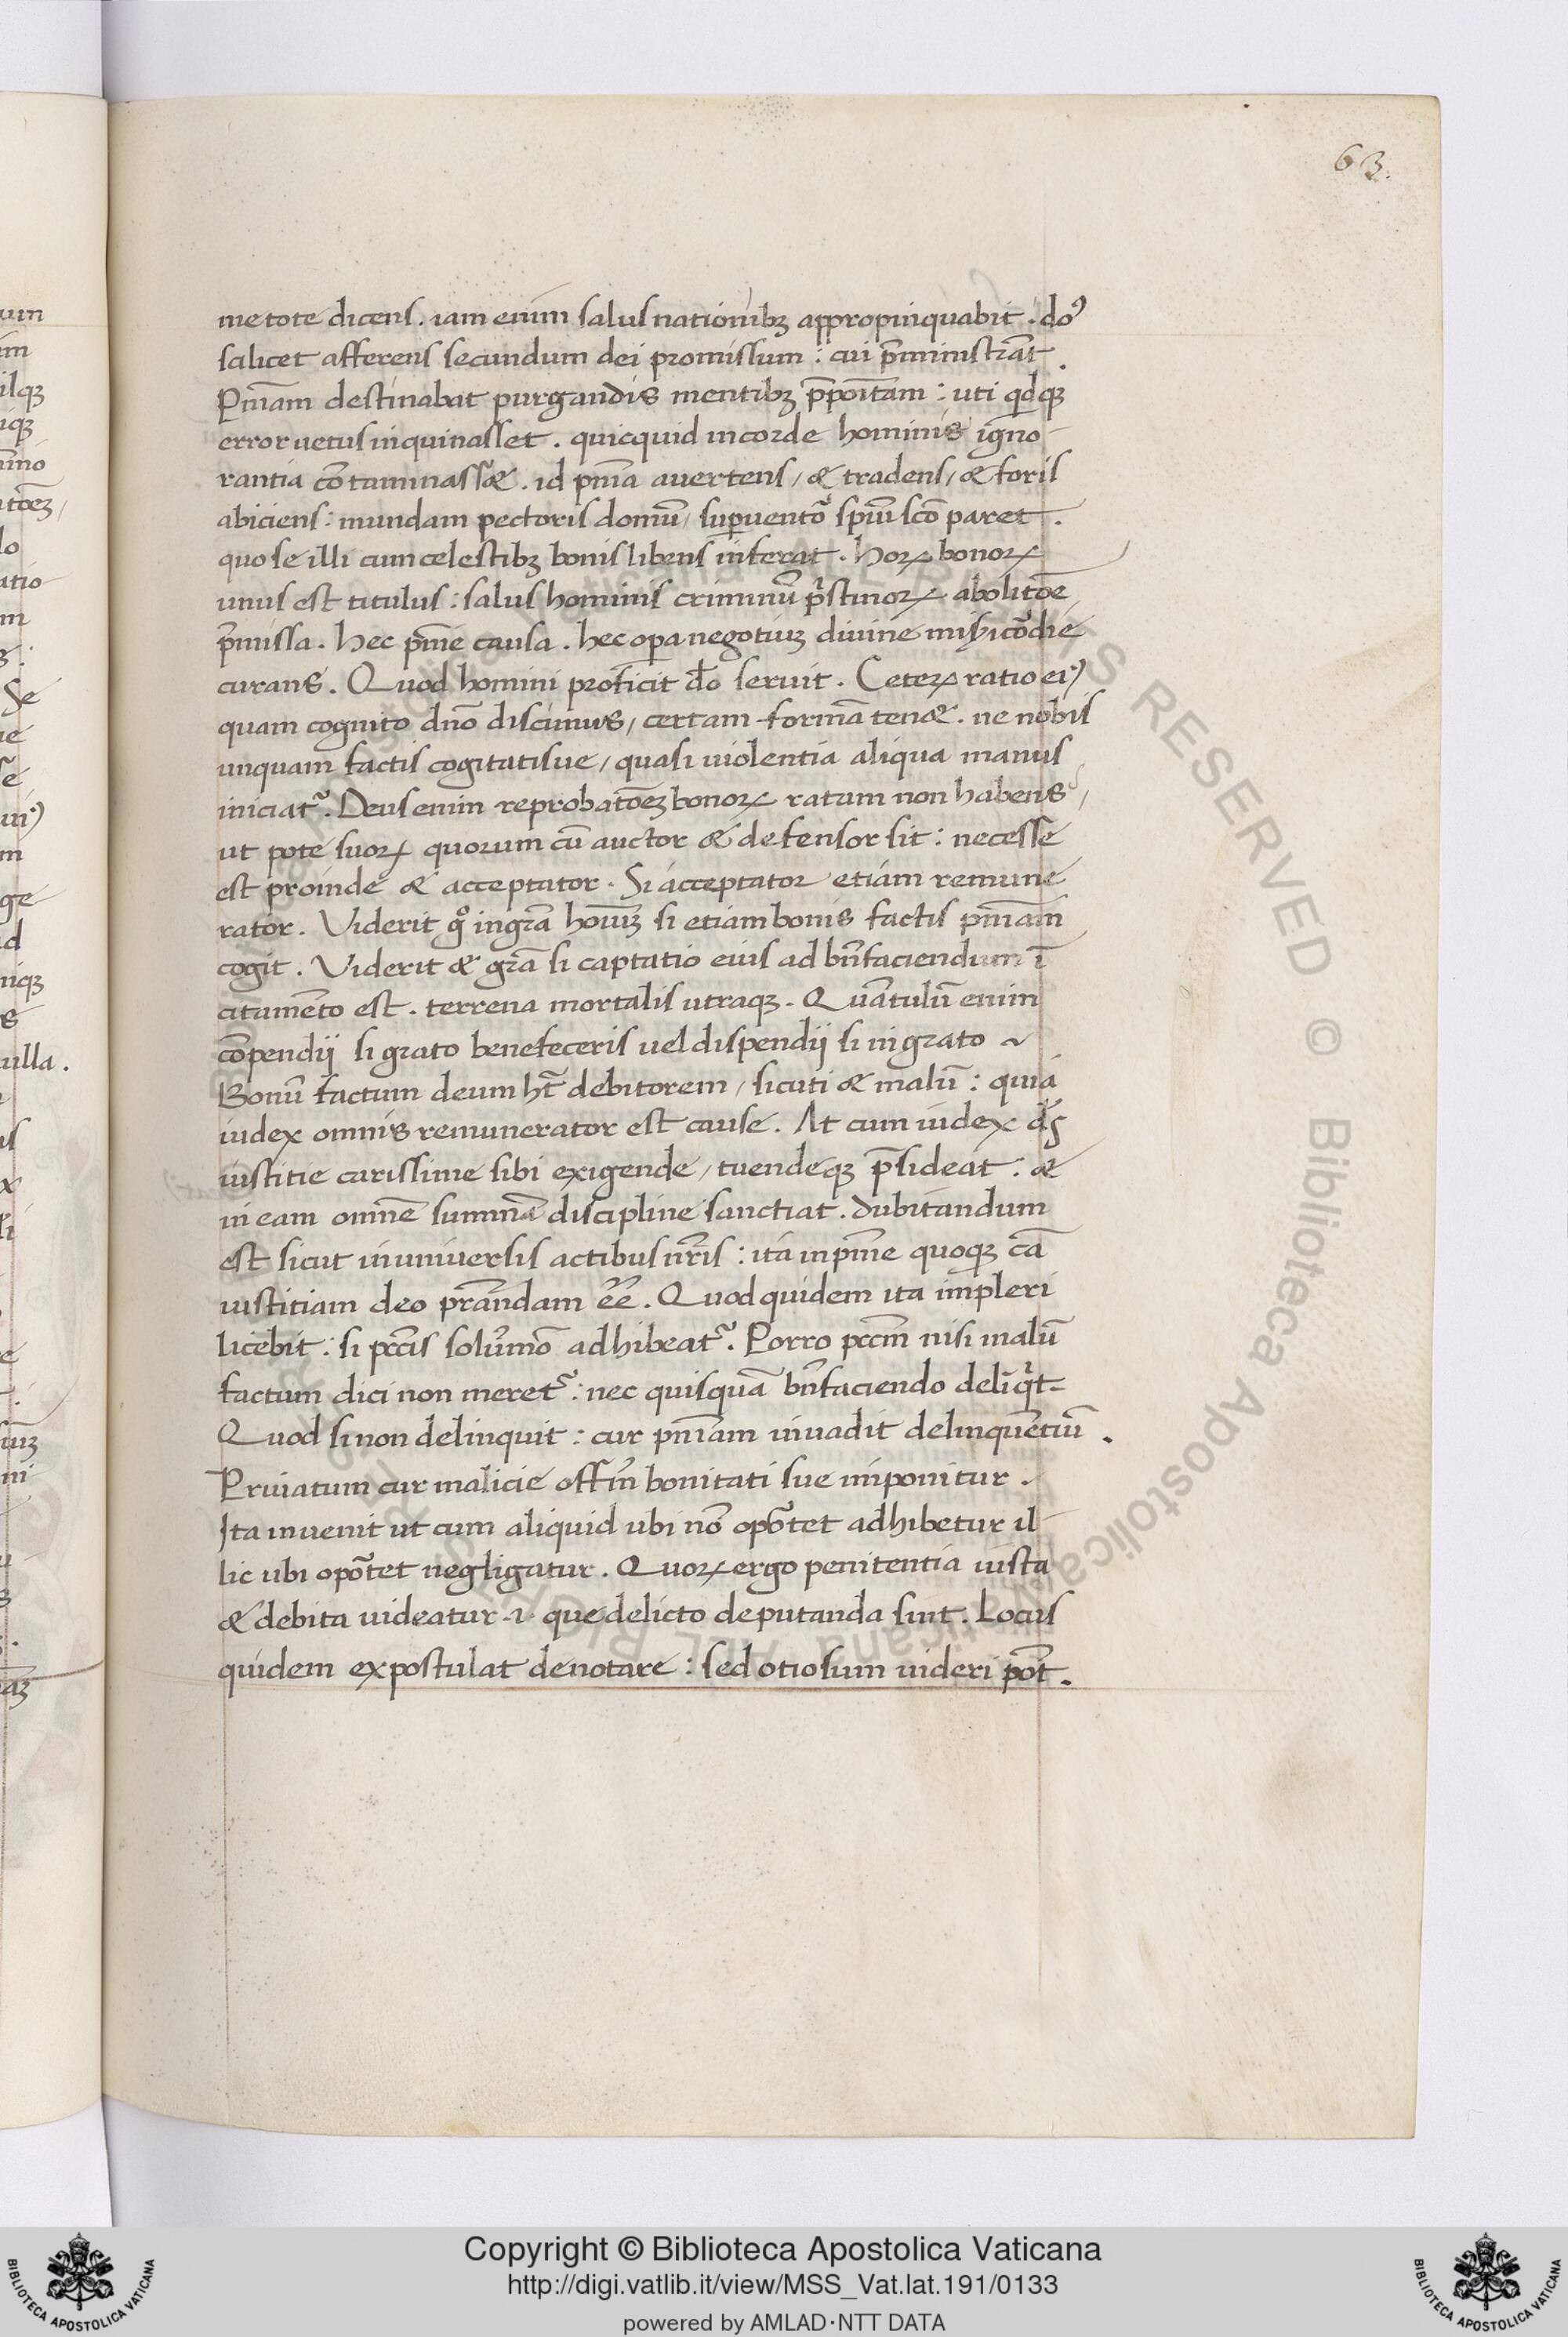 63.
metote dicens. iam enim salus nationibꝫ appropinquabit. doꝰ
scilicet afferens secundum dei promissum: cui p̄ministrāt.
Pniam̄ destinabat purgandis mentibꝫ p̄poītam: uti qdqꝫ
error uetus inquinasset. quicquid in corde hominis igno-
rantia cōtaminass&. id pnīa auertens / & tradens / & foris
abiciens: mundam pectoris domū / suꝑuentō spūi scō paret.
quo se illi cum celestibꝫ bonis libens inferat. Hoꝝ bonoꝝ
unus est titulus: salus hominis criminū pͥstinoꝝ abolitōe
p̄missa. Hec pnīe causa. hec oꝑa negotiuꝫ diuine misicordie
curans. Quod homini proficit dō seruit. Ceteꝝ ratio eiꝰ
quam cognito dnō discimus / certam formā ten&. ne nobis
unquam factis cogitatisue / quasi uiolentia aliqua manus
iniciatᷣ. Deus enim reprobatōeꝫ bonoꝝ ratam non habens /
ut pote suoꝝ quorum cū auctor & defensor sit: necesse
est proinde & acceptator. Si acceptator etiam remune
rator. Viderit gͦ ingrā hoīuꝫ si etiam bonis factis pnīam
cogit. Viderit & grā si captatio eius ad bn̄faciendum ī
citamēto est. terrena mortalis utraqꝫ. Quātulū enim
cōpendij si grato benefeceris uel dispendij si ingrato
Bonū factum deum ht̄ debitorem / sicuti & malū: quia
iudex omnis remunerator est cause. At cum iudex ds̄
iustitie carissime sibi exigende / tuendeqꝫ p̄sideat: &
in eam omnē summā discipline sanctiat. dubitandum
est sicut in uniuersis actibus nr̄is: ita in pnīe quoqꝫ cā
iustitiam deo pr̄andam eē. Quod quidem ita impleri
licebit: si pccīs solūmō adhibeatᷣ. Porro pccm̄ nisi malū
factum dici non meretᷣ: nec quisquā bn̄faciendo deliqͥt=
Quod si non delinquit: cur pnīam inuadit delinquētiū.
Pruiatum cur malicie offm̄ bonitati sue imponitur.
Ita inuenit ut cum aliquid ubi nō opōtet adhibetur il-
lic ubi opōtet negligatur. Quoꝝ ergo penitentia iusta
& debita uideatur .i. que delicto deputanda sint. Locus
quidem expostulat denotare: sed otiosum uideri pōt.
Copyright © Biblioteca Apostolica Vaticana
http://digi.vatlib.it/view/MSS_Vat.lat.191/0133
powered by AMLAD·NTT DATA